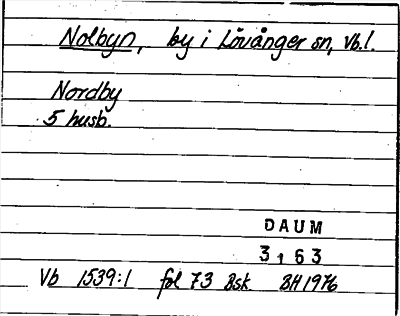 Nolbyn, by i Lövånger sn, Vb.l.
Nordby
5 husb.
DAUM
3163
Vb 1539:1 fol 73 Bsk BH 1976